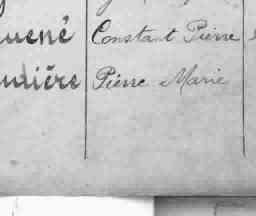 uené Constant Pierre
udière Pierre Marie